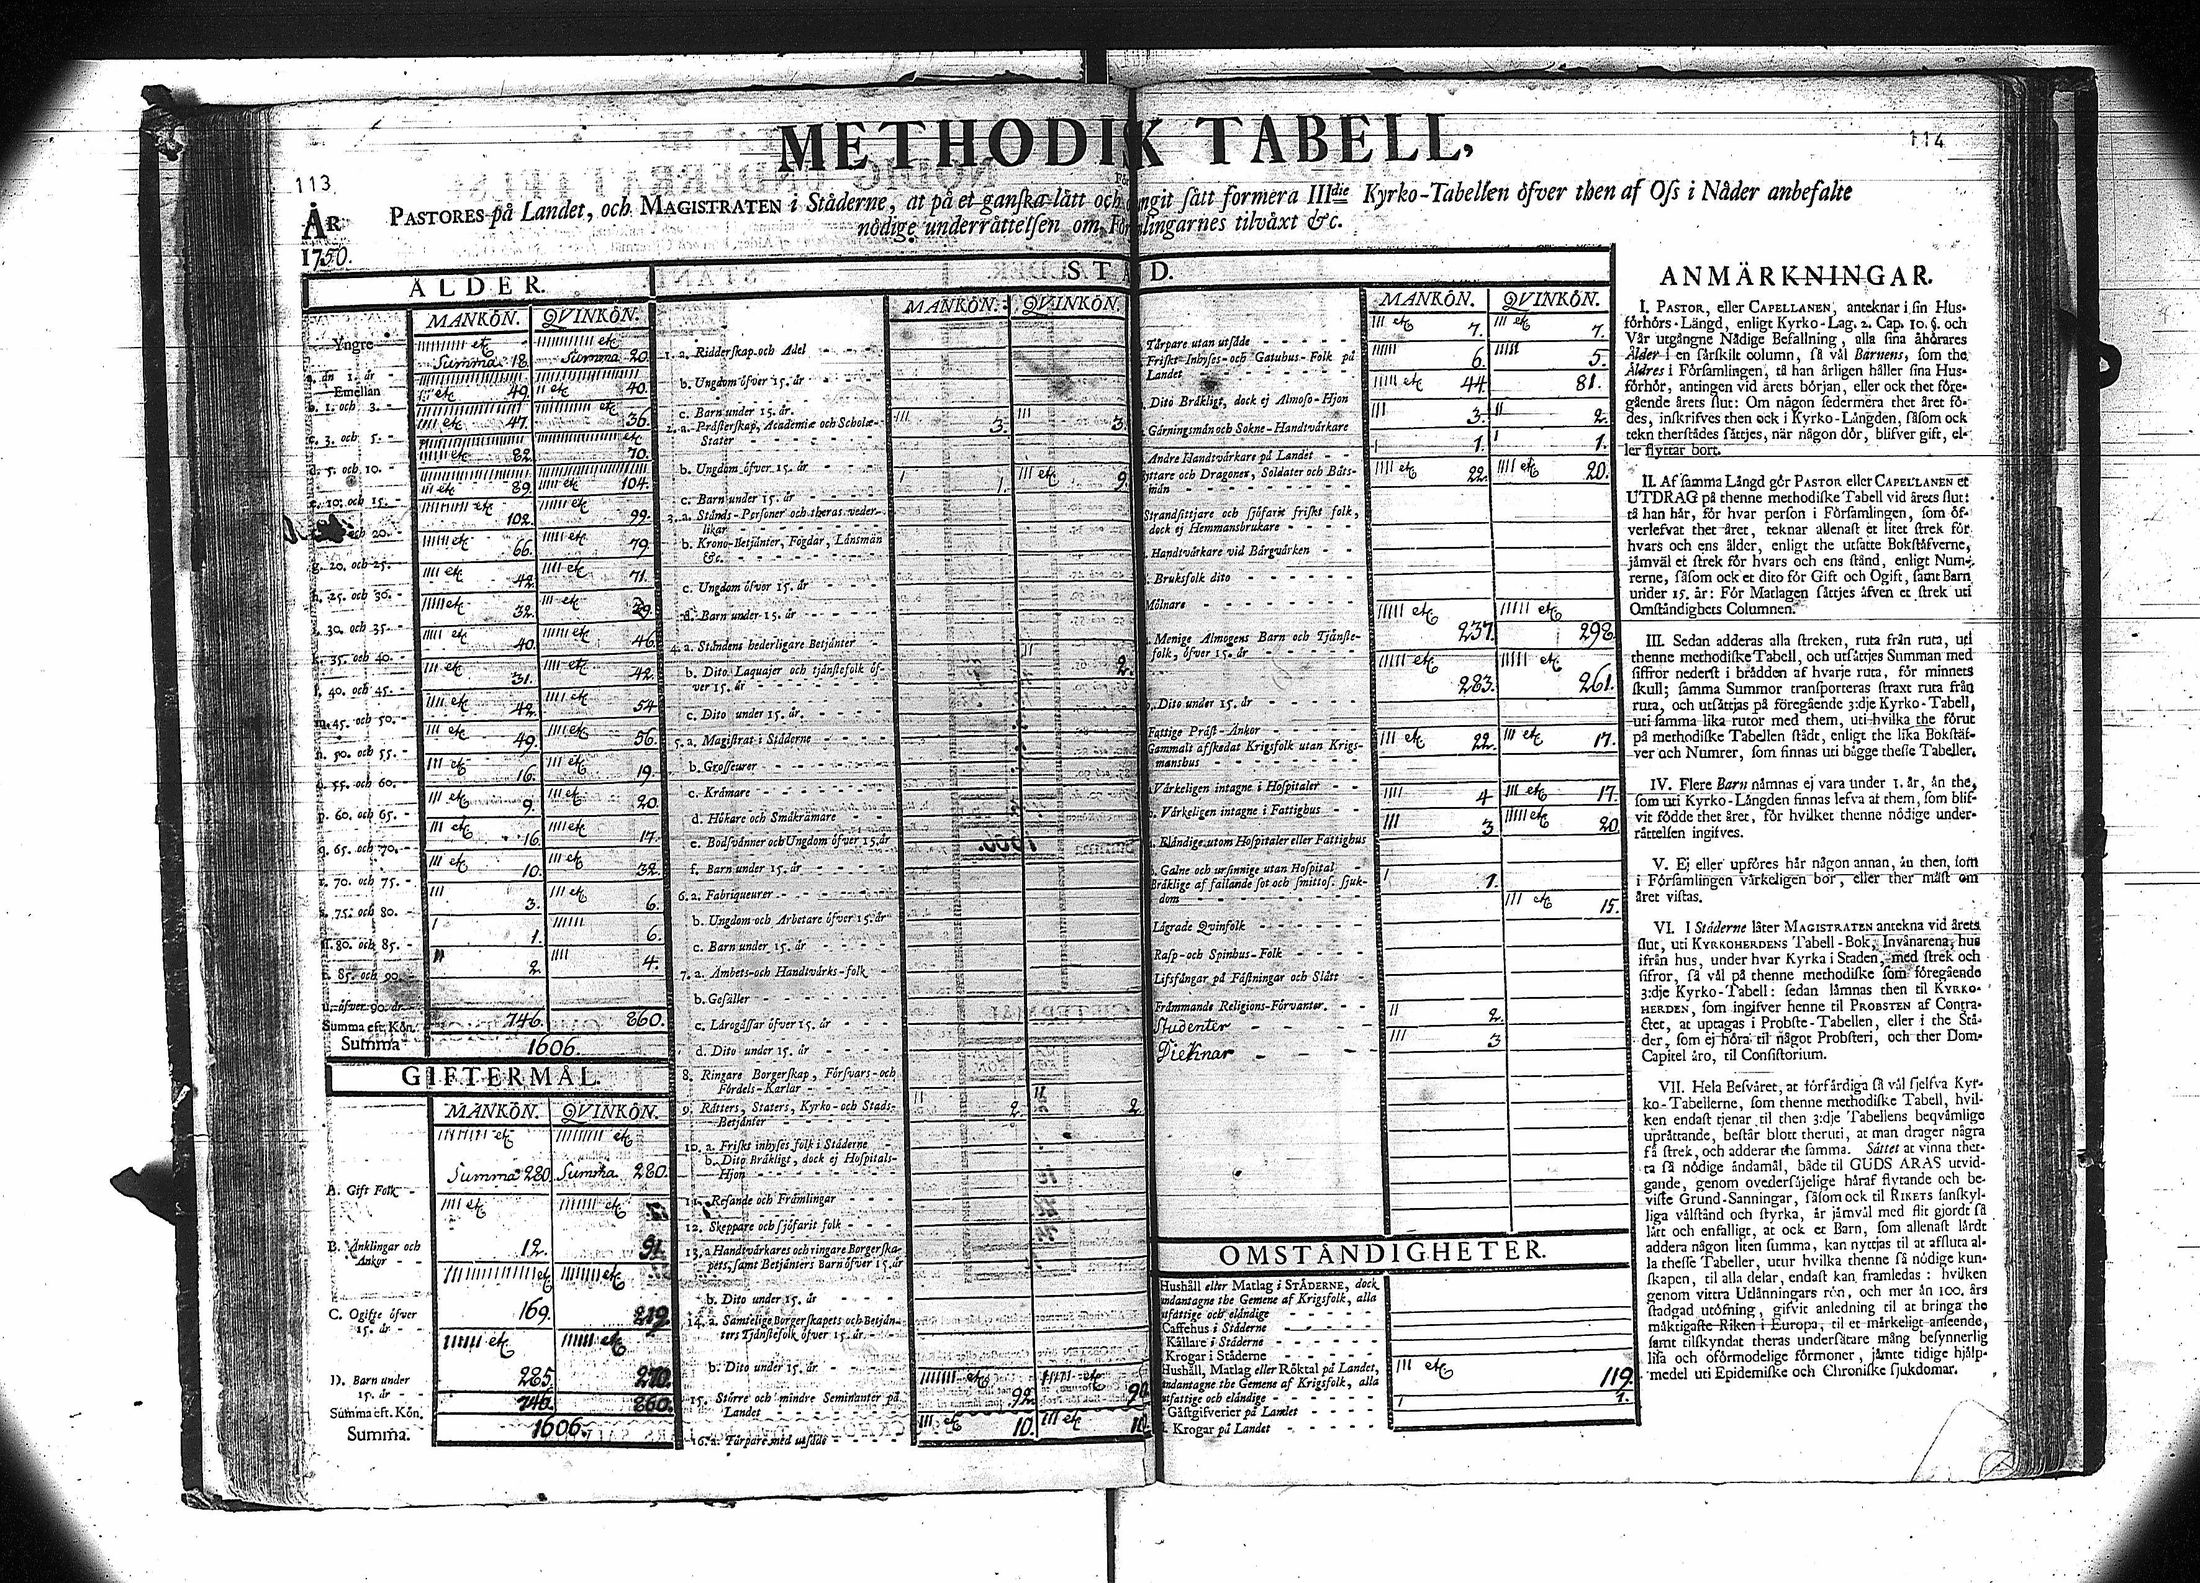 METHODIK TABELL,
113
114
För
PASTORES på Landet, och MAGISTRATEN i Städerne, at på et ganska lätt och gingit sätt formera IIIdie Kyrko-Tabellen öfver then af Oss i Nåder anbefalte
nödige underrättelsen om Församlingarnes tilväxt &c.
ÅR
1750.
ÅLDER.
MANKÖN. QVINKÖN.
Yngre än 1. år Summa 18. Summa 20.
Emellan
b. 1. och 3. 49. 40.
c. 3. och 5. 47. 36.
d. 5. och 10. 82. 70.
e. 10. och 15. 89. 104.
och 20. 102. 99.
g. 20. och 25. 66. 79.
h. 25. och 30. 42. 71.
i. 30. och 35. 32.
k. 35. och 40. 40. 46.
l. 40. och 45. 31. 42.
m. 45. och 50. 42. 54
n. 50. och 55. 49. 56.
o. 55. och 60. 16. 19.
p. 60. och 65. 9. 20.
q. 65. och 70. 16. 17.
r. 70. och 75. 10. 32.
s. 75. och 80. 3. 6.
80. och 85. 1. 6.
t. 85. och 90. 2. 4.
u. öfver 90. år
Summa eft. Kön. 746. 860.
Summa 1606.
GIFTERMÅL.
MANKÖN. QVINKÖN.
A. Gift Folk Summa 280. Summa 280.
B. Änklingar och Änkor 12. 91.
C. Ogifte öfver 15. år 169. 219.
D. Barn under 15. år 285. 270.
Summa eft. Kön. 746. 860.
Summa. 1606.
STÅND.
MANKÖN. QVINKÖN.
1. a. Ridderskap och Adel
b. Ungdom öfver 15. år
c. Barn under 15. år.
2. a. Prästerskap, Academiæ och Scholæ-Stater 3. 3.
b. Ungdom öfver 15. år 1. 9.
c. Barn under 15. år
3. a. Stånds-Personer och theras vederlikar
b. Krono-Betjänter, Fogdar, Länsmän &c.
c. Ungdom öfver 15. år
d. Barn under 15. år
4. a. Ståndens hederligare Betjänter
b. Dito Laquajer och tjänstefolk öfver 15. år 2.
c. Dito under 15. år.
5. a. Magistrat i Städerne
b. Grosseurer
c. Krämare
d. Hökare och Småkrämare
e. Bodsvänner och Ungdom öfver 15. år
f. Barn under 15. år
6. a. Fabriqueurer
b. Ungdom och Arbetare öfver 15. år
c. Barn under 15. år
7. a. Ämbets- och Handtvärks-folk
b. Gesäller
c. Lärogåssar öfver 15. år
d. Dito under 15. år
8. Ringare Borgerskap, Försvars- och Fördels-Karlar
9. Rätters, Staters, Kyrko- och Stads-Betjänter 2. 2
10. a. Friskt inhyses folk i Städerne
b. Dito Bräkligt, dock ej Hospitals-Hjon
11. Resande och Främlingar
12. Skeppare och sjöfarit folk
13. a. Handtvärkares och ringare Borgerskapets, samt Betjänters Barn öfver 15. år
b. Dito under 15. år
14. a. Samtelige Borgerskapets och Betjänters Tjänstefolk öfver 15. år
b. Dito under 15. år
15. Större och mindre Seminanter på Landet 92. 90.
16. a. Torpare med utsäde 10. 10.
MANKÖN. QVINKÖN.
Torpare utan utsäde 7. 7.
Friskt Inhyses- och Gatuhus-Folk på Landet 6. 5.
Dito Bräkligt, dock ej Almoso-Hjon 44. 81.
Gärningsmän och Sokne-Handtvärkare 3. 2.
Andre Handtvärkare på Landet 1. 1.
Ryttare och Dragoner, Soldater och Båtsmän 22. 20.
Strandsittjare och sjöfarit friskt folk, dock ej Hemmansbrukare
Handtvärkare vid Bärgvärken
Bruksfolk dito
Mölnare
Menige Almogens Barn och Tjänstefolk, öfver 15. år 237. 298.
Dito under 15. år 283. 261.
Fattige Präst-Änkor
Gammalt afskedat Krigsfolk utan Krigsmanshus 22. 17.
Värkeligen intagne i Hospitaler
b. Värkeligen intagne i Fattighus 4 17.
Eländige utom Hospitaler eller Fattighus 3 20
b. Galne och ursinnige utan Hospital
Bräklige af fallande sot och smittos. sjukdom 1.
Lägrade Qvinfolk 15.
Rasp- och Spinhus-Folk
Lifsfångar på Fästningar och Slått
Främmande Religions-Förvanter.
Studenter 2.
Dieknar 3
OMSTÄNDIGHETER.
Hushåll eller Matlag i STÄDERNE, dock
undantagne the Gemene af Krigsfolk, alla
utfattige och eländige
Caffehus i Städerne
Källare i Städerne
Krogar i Städerne
Hushåll, Matlag eller Röktal på Landet, 119.
undantagne the Gemene af Krigsfolk, alla
utfattige och eländige
Gästgifverier på Landet 1.
Krogar på Landet
ANMÄRKNINGAR.
I. PASTOR, eller CAPELLANEN, anteknar i sin Hus-
förhörs-Längd, enligt Kyrko-Lag. 2. Cap. 10. §. och
Vår utgångne Nådige Befallning, alla sina åhörares
Ålder i en särskilt column, så väl Barnens, som the
Äldres i Församlingen, tå han årligen håller sina Hus-
förhör, antingen vid årets början, eller ock thet före-
gående årets slut: Om någon sedermera thet året fö-
des, inskrifves then ock i Kyrko-Längden, såsom ock
tekn therstädes sättjes, när någon dör, blifver gift, el-
ler flyttar bort.
II. Af samma Längd gör PASTOR eller CAPELLANEN et
UTDRAG på thenne methodiske Tabell vid årets slut:
tå han här, för hvar person i Församlingen, som öf-
verlefvat thet året, teknar allenast et litet strek för
hvars och ens ålder, enligt the utsatte Bokstäfverne,
jämväl et strek för hvars och ens stånd, enligt Num-
rerne, såsom ock et dito för Gift och Ogift, samt Barn
under 15. år: För Matlagen sättjes äfven et strek uti
Omständighets Columnen.
III. Sedan adderas alla streken, ruta från ruta, uti
thenne methodiske Tabell, och utsättjes Summan med
siffror nederst i brädden af hvarje ruta, för minnets
skull; samma Summor transporteras straxt ruta från
ruta, och utsättjas på föregående 3:dje Kyrko-Tabell,
uti samma lika rutor med them, uti hvilka the förut
på methodiske Tabellen stådt, enligt the lika Bokstäf-
ver och Numrer, som finnas uti bägge thesse Tabeller.
IV. Flere Barn nämnas ej vara under 1. år, än the,
som uti Kyrko-Längden finnas lefva af them, som blif-
vit födde thet året, för hvilket thenne nödige under-
rättelsen ingifves.
V. Ej eller upföres här någon annan, än then, som
i Församlingen värkeligen bor, eller ther mäst om
året vistas.
VI. I Städerne låter MAGISTRATEN antekna vid årets
slut, uti KYRKOHERDENS Tabell-Bok, Invånarena, hus
ifrån hus, under hvar Kyrka i Staden, med strek och
sifror, så väl på thenne methodiske som föregående
3:dje Kyrko-Tabell: sedan lämnas then til KYRKO-
HERDEN, som ingifver henne til PROBSTEN af Contra-
ctet, at uptagas i Probste-Tabellen, eller i the Stä-
der, som ej höra til något Probsteri, och ther Dom-
Capitel äro, til Consistorium.
VII. Hela Besväret, at förfärdiga så väl sjelfva Kyr-
ko-Tabellerne, som thenne methodiske Tabell, hvil-
ken endast tjenar til then 3:dje Tabellens beqvämlige
uprättande, består blott theruti, at man drager några
få strek, och adderar the samma. Sättet at vinna thet-
ta så nödige ändamål, både til GUDS ÄRAS utvid-
gande, genom ovedersäjelige häraf flytande och be-
viste Grund-Sanningar, såsom ock til RIKETS sanskyl-
liga välstånd och styrka, är jämväl med flit gjordt så
lätt och enfalligt, at ock et Barn, som allenast lärdt
addera någon liten summa, kan nyttjas til at afsluta al-
la thesse Tabeller, utur hvilka thenne så nödige kun-
skapen, til alla delar, endast kan framledas: hvilken
genom vittra Utlänningars rön, och mer än 100. års
stadgad utöfning, gifvit anledning til at bringa the
mäktigaste Riken i Europa, til et märkeligt anseende,
samt tilskyndat theras undersåtare mång besynnerlig
lisa och oförmodelige förmoner, jämte tidige hjälp-
medel uti Epidemiske och Chroniske sjukdomar.